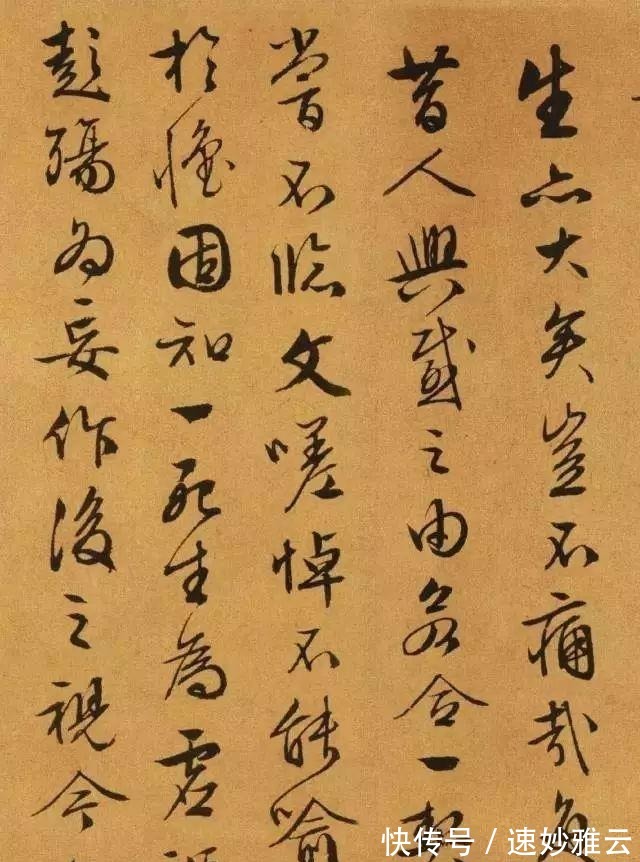 生亦大矣豈不痛哉每
昔人興感之由若合一契
嘗不臨文嗟悼不能喻
於懷固知一死生為虛
彭殤為妄作後之視今
快传号 / 速妙雅云